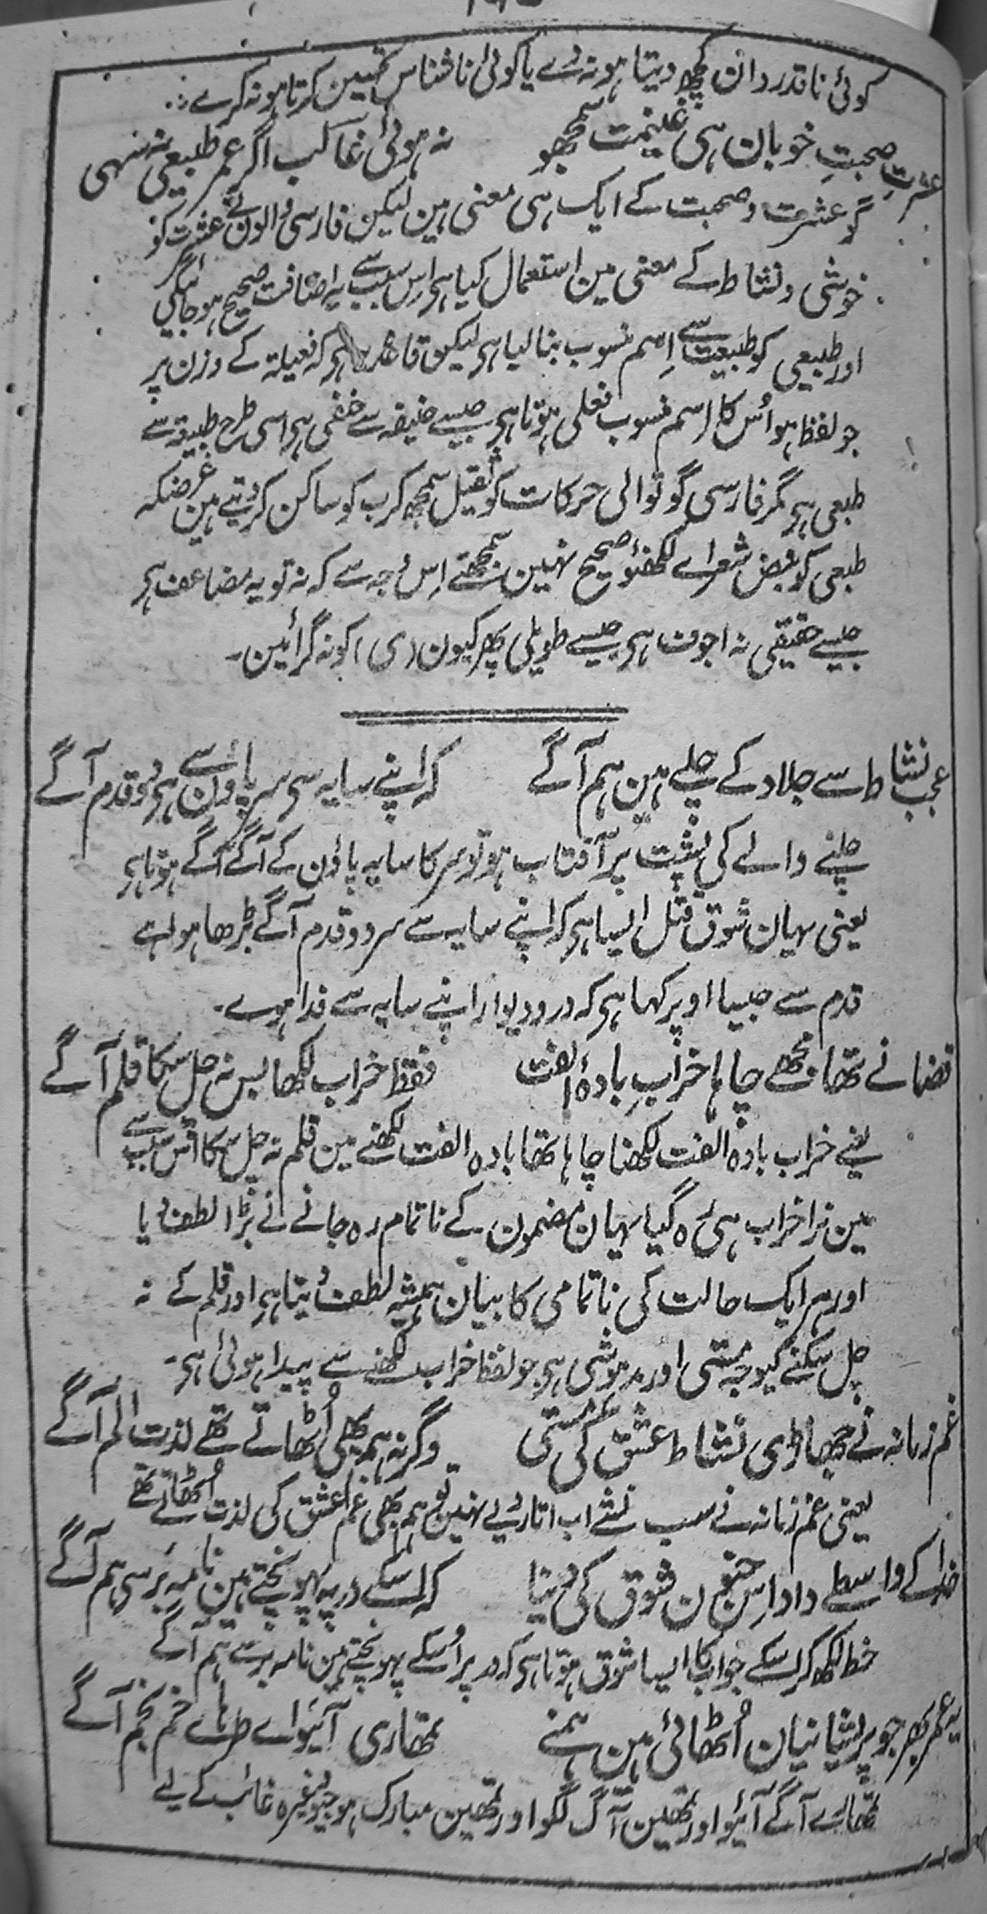 کوئی ناقدردان کچھ دیتا ہو نہ دے یا کوئی ناشناس تحسین کرتا ہو نہ کرے
عشرتِ صحبتِ خوبان ہی غنیمت سمجھو نہ ہوئی غالب اگر عمر طبیعی نہ سہی
گو عشرت و صحبت کے ایک ہی معنی ہین لیکن فارسی والون نے عشرت کو
خوشی و نشاط کے معنی مین استعمال کیا ہے اس سبب سے یہ اضافت صحیح ہو جائیگی
اور طبیعی کو طبیعت سے اسم منسوب بنا لیا ہے لیکن قاعدہ یہ ہے کہ فعیلۃ کے وزن پر
جو لفظ ہو اُس کا اسم منسوب فعلی ہوتا ہے جیسے حنیفہ سے حنفی ہے اسی طرح طبیعۃ سے
طبعی ہے مگر فارسی گو توالی حرکات کو ثقیل سمجھ کر ب کو ساکن کر دیتے ہین غرضکہ
طبعی کو بعض شعراے لکھنؤ صحیح نہین سمجھتے اِس وجہ سے کہ نہ تو یہ مضاعف ہے
جیسے حقیقی نہ اجوف ہے جیسے طویلی پھر کیون (ی) کو نہ گرائین۔
عجب نشاط سے جلاد کے چلے ہین ہم آگے کہ اپنے سایہ سی سر پاؤن سے ہے دو قدم آگے
چلنے والے کی پشت پر آفتاب ہو تو سر کا سایہ پاؤن کے آگے آگے ہوتا ہے
یعنی یہان شوق قتل ایسا ہے کہ اپنے سایہ سے سر دو قدم آگے بڑھا ہوا ہے
قدم سے جیسا اوپر کہا ہے کہ در و دیوار اپنے سایہ سے فدا ہوے۔
قضا نے تھا مجھے چاہا خرابِ بادۂ الفت فقط خراب لکھا بس نہ چل سکا قلم آگے
یعنے خراب بادہ الفت لکھنا چاہا تھا بادہ الفت لکھنے مین قلم نہ چل سکا اس سبب سے
مین نرا خراب ہی رہ گیا یہان مضمون کے ناتمام رہ جانے نے بڑا لطف دیا
اور ہر ایک حالت کی ناتمامی کا بیان ہمیشہ لطف دیتا ہے اور قلم کے نہ
چل سکنے کیوجہ مستی اور مدہوشی ہے جو لفظ خراب لکھنے سے پیدا ہوئی ہے۔
غم زمانہ نے جھاڑی نشاط عشق کی مستی وگرنہ ہم بھی اُٹھاتے تھے لذت الم آگے
یعنی غم زمانہ نے سب نشے اب اتار دیے نہین تو ہم بھی غم عشق کی لذت اُٹھاتے تھے
خدا کے واسطے داد اس جنون شوق کی دینا کہ اسکے در پہ پہونچتے ہین نامہ بر سی ہم آگے
خط لکھ کر اسکے جواب کا ایسا شوق ہوتا ہے کہ در پر اُسکے پہونچتے ہین نامہ بر سے ہم آگے
یہ عمر بھر جو پریشانیان اُٹھائی ہین ہمنے تمھاری آئیو اے طرہاے خم بخم آگے
تمھارے آگے آئیو اور تمھین آگ لگو اور تمھین مبارک ہو جیو وغیرہ غائب کے لیے